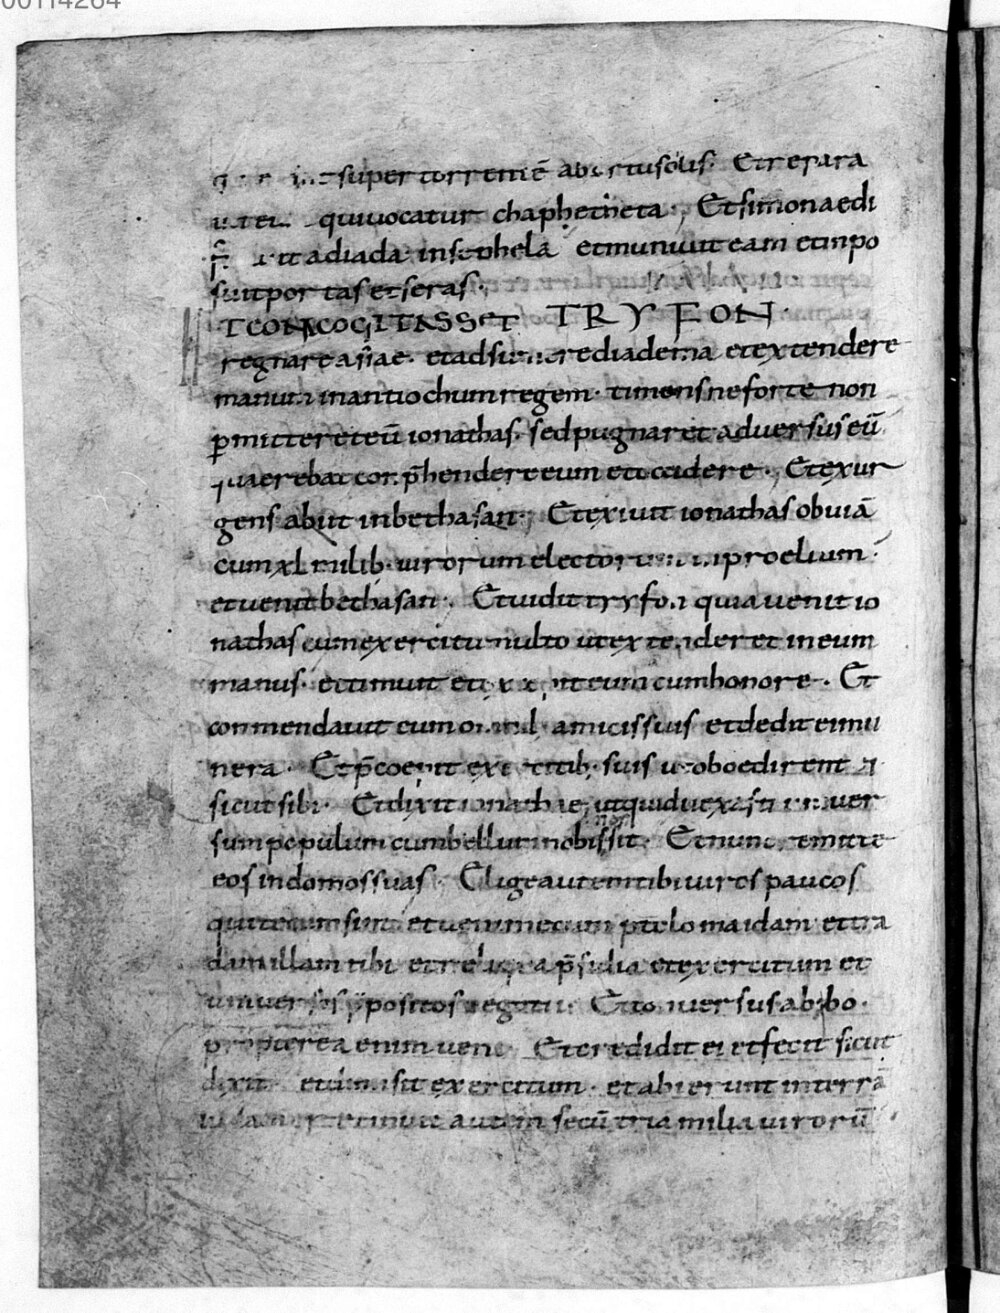 00114264
super torrentē abortusolis. Et repara
qui vocatur chaphetheta; Et simon aedi
adiada insephela et munivit eam et inpo
suit portas et seras.
Et cōn cogitasset TRYFON
regnare asiae. et adsumere diadema et extendere
manum in antiochum regem. timens ne forte non
p̱mitteret eū ionathas. sed pugnaret adversus eū
quaerebat conp̄hendere eum et occidere. Et exur
gens abiit in bethasan; Et exivit ionathas obviā
cum xl milib. virorum electorum in proelium.
et venit bethasan. Et vidit tryfon quia venit io
nathas cum exercitu multo ut extenderet in eum
manus. et timuit et excepit eum cum honore. Et
commendavit eum omnib. amicis suis et dedit ei mu
nera. Et p̄coepit exercitib. suis ut oboedirent ei
sicut sibi. Et dixit ionathae, ut quid vexasti univer
sum populum cum bellum nobis non sit. Et nunc remitte
eos in domos suas. Elige autem tibi viros paucos
qui tecum sint et veni mecum ptolomaidam et tra
dam illam tibi et reliqua p̄sidia et exercitum et
universos p̄positos negotii. Et conversus abibo.
propterea enim veni. Et credidit ei et fecit sicut
dixit. et dimisit exercitum. et abierunt in terrā
iuda et retinuit autem secū tria milia virorū